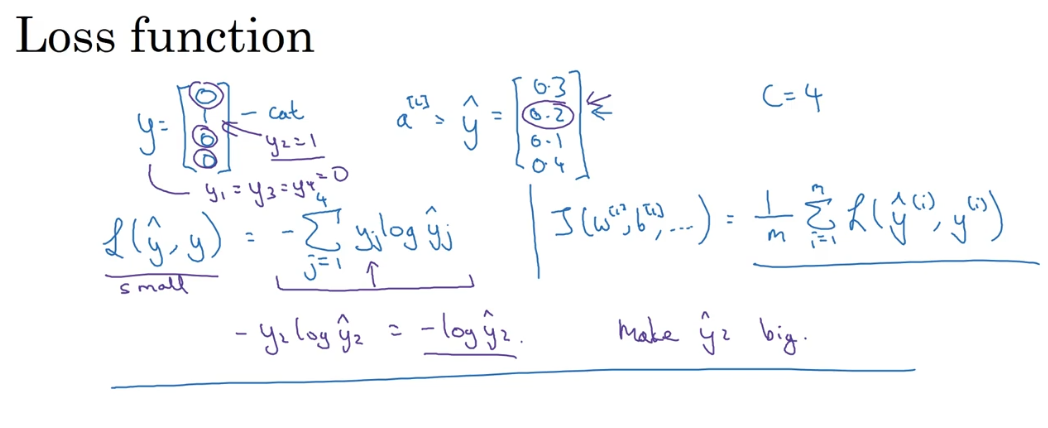 Loss function
y = [0 1 0 0] - cat
y₂ = 1
y₁ = y₃ = y₄ = 0
a^[L] = ŷ = [0.3 0.2 0.1 0.4]
C = 4
ℒ(ŷ, y) = - ∑_{j=1}^{4} y_j log ŷ_j
small
J(w^[1], b^[1], ...) = 1/m ∑_{i=1}^{m} ℒ(ŷ^(i), y^(i))
- y₂ log ŷ₂ = - log ŷ₂.
Make ŷ₂ big.